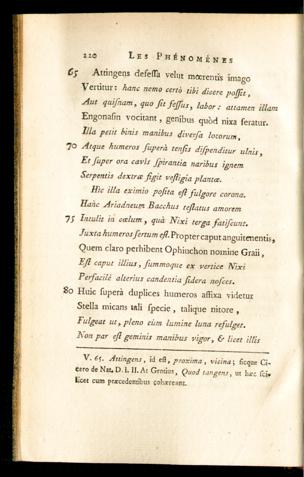 220 LES PHÉNOMÉNES
65 Attingens defessa velut mœrentis imago
Vertitur: hanc nemo certò tibi dicere possit,
Aut quisnam, quo sit fessus, labor: attamen illam
Engonasin vocitant, genibus quòd nixa feratur.
Illa petit binis manibus diversa locorum,
70 Atque humeros superà tensis dispenditur ulnis,
Et super ora cavis spirantia naribus ignem
Serpentis dextræ figit vestigia plantæ.
Hic illa eximio posita est fulgore corona.
Hanc Ariadneum Bacchus testatus amorem
75 Intulit in cœlum, quà Nixi terga fatiscunt.
Juxta humeros sertum est. Propter caput anguitenentis,
Quem claro perhibent Ophiuchon nomine Graii,
Est caput illius, summoque ex vertice Nixi
Perfacilè alterius candentia sidera nosces.
80 Huic superà duplices humeros affixa videtur
Stella micans tali specie, talique nitore,
Fulgeat ut, pleno cùm lumine luna refulget.
Non par est geminis manibus vigor, & licet illis
V. 65. Attingens, id est, proxima, vicina; sicque Ci-
cero de Nat. D. l. II. At Grotius, Quod tangens, ut hæc sci-
licet cum præcedentibus cohæreant.